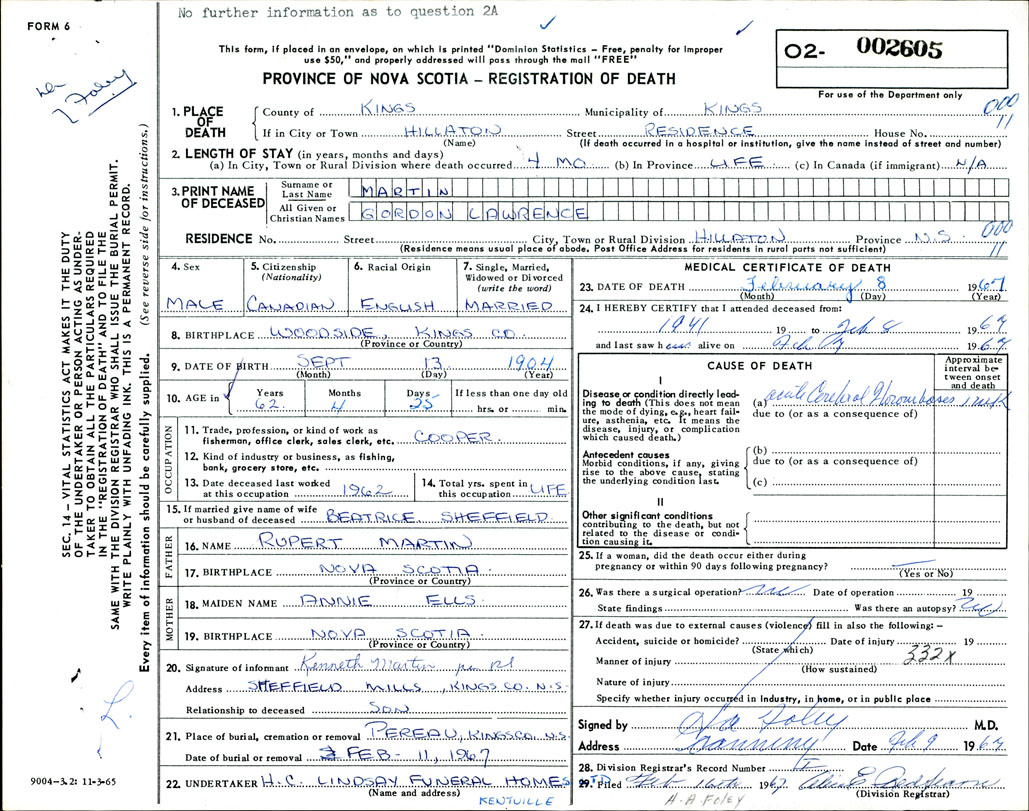 No further information as to question 2A
FORM 6
This form, if placed in an envelope, on which is printed "Dominion Statistics – Free, penalty for improper
use $50," and properly addressed will pass through the mail "FREE"
PROVINCE OF NOVA SCOTIA – REGISTRATION OF DEATH
O2- 002605
For use of the Department only
Foley
SEC. 14 – VITAL STATISTICS ACT MAKES IT THE DUTY
OF THE UNDERTAKER OR PERSON ACTING AS UNDER-
TAKER TO OBTAIN ALL THE PARTICULARS REQUIRED
IN THE "REGISTRATION OF DEATH" AND TO FILE THE
SAME WITH THE DIVISION REGISTRAR WHO SHALL ISSUE THE BURIAL PERMIT.
WRITE PLAINLY WITH UNFADING INK. THIS IS A PERMANENT RECORD.
Every item of information should be carefully supplied. (See reverse side for instructions.)
1. PLACE OF DEATH
County of KINGS Municipality of KINGS
000
11
If in City or Town HILLATON Street RESIDENCE House No.
(Name) (If death occurred in a hospital or institution, give the name instead of street and number)
2. LENGTH OF STAY (in years, months and days)
(a) In City, Town or Rural Division where death occurred 4 MO. (b) In Province LIFE (c) In Canada (if immigrant) N/A
3. PRINT NAME OF DECEASED
Surname or Last Name MARTIN
All Given or Christian Names GORDON LAWRENCE
000
11
RESIDENCE No. Street City, Town or Rural Division HILLATON Province N.S.
(Residence means usual place of abode. Post Office Address for residents in rural parts not sufficient)
4. Sex 5. Citizenship (Nationality) 6. Racial Origin 7. Single, Married, Widowed or Divorced (write the word)
MALE CANADIAN ENGLISH MARRIED
8. BIRTHPLACE WOODSIDE, KINGS CO.
(Province or Country)
9. DATE OF BIRTH SEPT 13 1904
(Month) (Day) (Year)
10. AGE in Years Months Days If less than one day old
62 4 25 hrs. or min.
OCCUPATION
11. Trade, profession, or kind of work as
fisherman, office clerk, sales clerk, etc. COOPER
12. Kind of industry or business, as fishing,
bank, grocery store, etc.
13. Date deceased last worked
at this occupation 1962
14. Total yrs. spent in
this occupation LIFE
15. If married give name of wife
or husband of deceased BEATRICE SHEFFIELD
FATHER
16. NAME RUPERT MARTIN
17. BIRTHPLACE NOVA SCOTIA
(Province or Country)
MOTHER
18. MAIDEN NAME ANNIE ELLS
19. BIRTHPLACE NOVA SCOTIA
(Province or Country)
20. Signature of informant Kenneth Martin per
Address SHEFFIELD MILLS, KINGS CO. N.S.
Relationship to deceased SON
21. Place of burial, cremation or removal PEREAU, KINGS CO. N.S.
Date of burial or removal FEB - 11, 1967
22. UNDERTAKER H.C. LINDSAY FUNERAL HOMES
(Name and address)
KENTVILLE
9004–3.2: 11-3-65
MEDICAL CERTIFICATE OF DEATH
23. DATE OF DEATH February 8 1967
(Month) (Day) (Year)
24. I HEREBY CERTIFY that I attended deceased from:
1941 19 to Feb 8 1967
and last saw h alive on Feb 1967
CAUSE OF DEATH
Approximate interval between onset and death
I
Disease or condition directly lead-
ing to death (This does not mean
the mode of dying, e.g., heart fail-
ure, asthenia, etc. It means the
disease, injury, or complication
which caused death.)
(a) acute Cerebral Thromboses 1 wk
due to (or as a consequence of)
Antecedent causes
Morbid conditions, if any, giving
rise to the above cause, stating
the underlying condition last.
(b)
due to (or as a consequence of)
(c)
II
Other significant conditions
contributing to the death, but not
related to the disease or condi-
tion causing it.
25. If a woman, did the death occur either during
pregnancy or within 90 days following pregnancy?
(Yes or No)
26. Was there a surgical operation? no Date of operation 19
State findings Was there an autopsy? no
27. If death was due to external causes (violence) fill in also the following: –
Accident, suicide or homicide? Date of injury 19
(State which)
332X
Manner of injury
(How sustained)
Nature of injury
Specify whether injury occurred in industry, in home, or in public place
Signed by H A Foley M.D.
Address Canning Date Feb 9 1967
28. Division Registrar's Record Number
29. Filed Feb 16th 1967
(Division Registrar)
H-A FOLEY